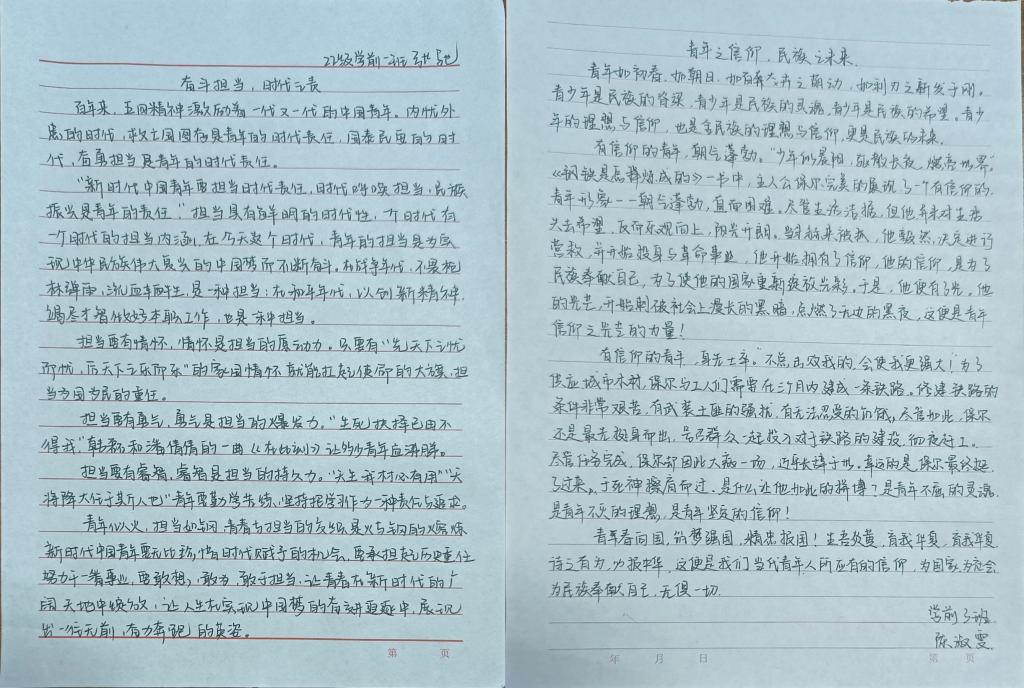 22级学前一班
奋斗担当，时代之责
百年来，五四精神激励着一代又一代的中国青年。内忧外
患的时代，救亡图存是青年的时代责任，国泰民安的时
代，有勇担当是青年的时代责任。
“新时代中国青年要担当时代责任，时代呼唤担当，民族
振兴是青年的责任。”担当具有鲜明的时代性，一个时代有
一个时代的担当内涵，在今天这个时代，青年的担当是为实
现中华民族伟大复兴的中国梦而不断奋斗。在战争年代，不畏枪
林弹雨，流血牺牲，是一种担当；在和平年代，以创新精神，
竭尽才智做好本职工作，也是一种担当。
担当要有情怀，情怀是担当的原动力。只要有“先天下之忧
而忧，后天下之乐而乐”的家国情怀就能扛起使命的大旗，担
当为国为民的重任。
担当要有勇气，勇气是担当的爆发力。“生死抉择已由不
得我”韩磊和潘倩倩的一曲《在此刻》让多少青年血涌
担当要有睿智，睿智是担当的持久力。“天生我材必有用”“天
将降大任于斯人也”青年要勤学苦练，坚持把学习作为一种责任与追求。
青年似火，担当如钢，青春与担当的交织是火与钢的火熔炼
新时代中国青年要珍惜时代赋予的机会，要承担起历史重任
努力干一番事业，要敢想，敢为，敢于担当，让青春在新时代的广
阔天地中绽放，让人生在实现中国梦的奋进追逐中，展现
出一往无前，奋力奔跑的英姿。
第 页
青年之信仰，民族之未来
青年如初春，如朝日，如百卉之萌动，如利刃之新发于刚。
青少年是民族的脊梁，青少年是民族的灵魂，青少年是民族的希望。青少
年的理想与信仰，也是全民族的理想与信仰，更是民族的未来。
有信仰的青年，朝气蓬勃。“少年似晨阳，跃散长夜，燃亮世界”
《钢铁是怎样炼成的》一书中，主人公保尔完美的展现了一个有信仰的
青年形象——朝气蓬勃，直面困难。尽管生活拮据，但他并未对生活
失去希望，反而乐观向上，阳光开朗。当朱赫来被抓，他毅然决定进行
营救，并开始投身与革命事业，他开始拥有了信仰，他的信仰，是为了
民族奉献自己，为了使他的国家重新绽放光彩。于是，他便有了光。他
的光芒，开始刺破社会上漫长的黑暗，点燃了无边的黑夜，这便是青年
信仰之光芒的力量！
有信仰的青年，身先士卒。“不点击败我的，会使我更强大！”为了
供应城市木材，保尔与工人们需要在三个月内建成一条铁路。修建铁路的
条件非常艰苦，有武装土匪的骚扰，有无法忍受的饥饿。尽管如此，保尔
还是最先挺身而出，号召群众一起投入对于铁路的建设，彻夜赶工。
尽管任务完成，保尔却因此大病一场，近乎长辞于世。幸运的是，保尔最终挺
了过来，于死神擦肩而过。是什么让他如此的拼搏？是青年不屈的灵魂，
是青年不灭的理想，是青年坚定的信仰！
青年春向国，筑梦强国，精忠报国！生吾炎黄，育我华夏，育我华夏
诗之有为，为报中华，这便是我们当代青年人所应有的信仰，为国家为社会，
为民族奉献自己，无愧一切。
学前3班
陈淑雯
年 月 日
第 页